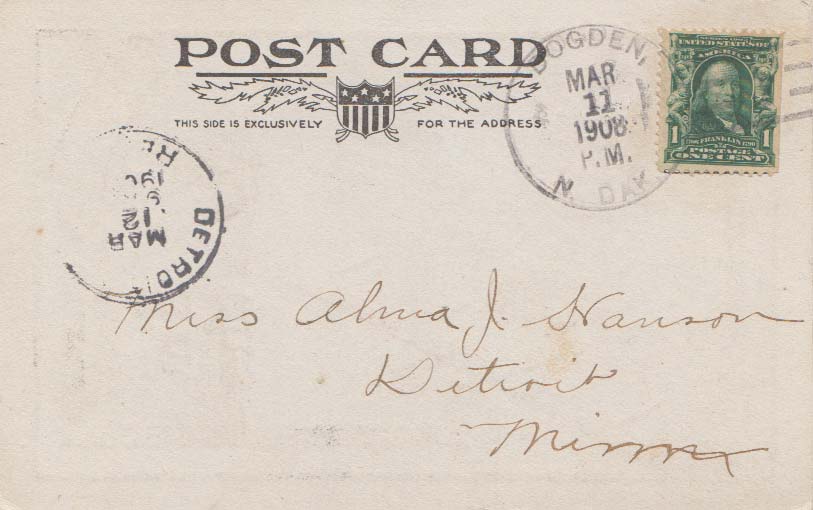 POST CARD
THIS SIDE IS EXCLUSIVELY FOR THE ADDRESS
DOGDEN,
MAR
11
1908
P.M.
N. DAK
UNITED STATES OF
AMERICA
1 FRANKLIN 1
POSTAGE
ONE CENT
DETROI
MAR
12
RE
Miss Alma J. Hanson
Detroit
Minn